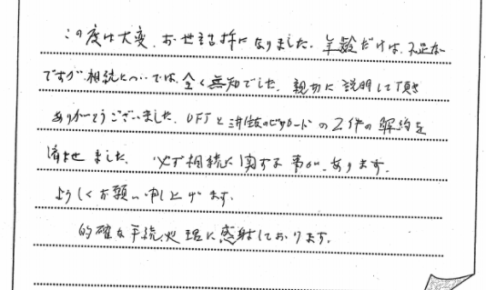 この度は大変、お世話様になりました。年齢だけは、不足ない
ですが相続については、全く無知でした。親切に説明して頂き
ありがとうございました。UFJと カードの2件の解約を
済ませました。 相続に関する事が、あります。
よろしくお願い申し上げます。
的確な手続処理に感射しております。